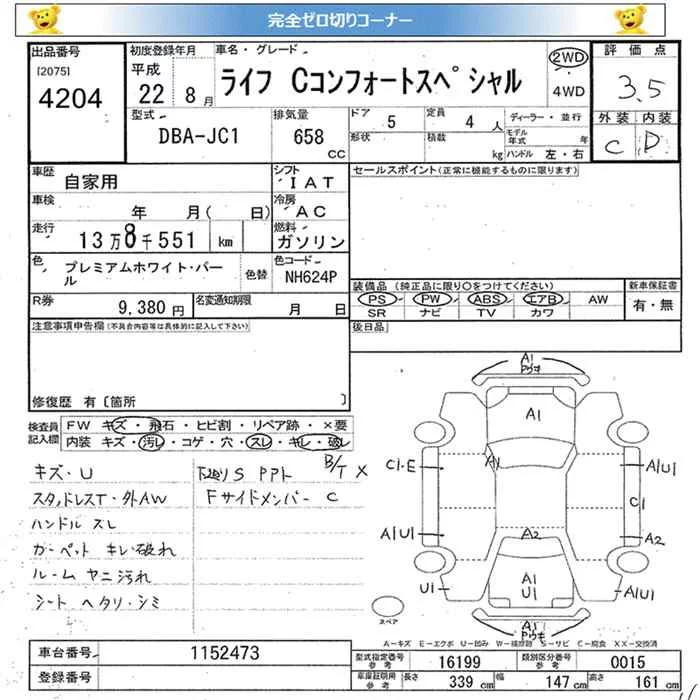 完全ゼロ切りコーナー
出品番号
[2075]
4204
初度登録年月
平成
22年 8月
車名・グレード
ライフ Cコンフォートスペシャル
2WD
4WD
評価点
3.5
外装 内装
C D
型式
DBA-JC1
排気量
658
CC
ドア 5
形状
定員 4人
積載 kg
ディーラー・並行
モデル年式 年
ハンドル 左・右
車歴
自家用
シフト
IAT
セールスポイント(正常に機能するものに限ります)
車検
年 月( 日)
冷房
AC
走行
13万8千551 km
燃料
ガソリン
色
プレミアムホワイト・パール
色替
色コード
NH624P
装備品 (純正品に限り○をつけてください)
PS PW ABS エアB AW
SR ナビ TV カワ
新車保証書
有・無
R券
9,380円
名変通知期限
月 日
後日品
注意事項申告欄(不具合内容等は具体的に記入して下さい)
修復歴 有〔箇所 〕
検査員記入欄
FW キズ・飛石・ヒビ割・リペア跡・×要
内装 キズ・汚レ・コゲ・穴・スレ・キレ・破レ
キズ・U
下廻りS PPト B/T X
スタッドレスT・外AW
Fサイドメンバー C
ハンドル スレ
カーペット キレ破れ
ルーム ヤニ汚れ
シート ヘタリ・シミ
A1
A1
A1
C1・E
A1U1
C1
A1U1
A2
A2
U1
A1
U1
A1U1
A1
スペア
A-キズ E-エクボ U-凹み W-補修跡 S-サビ C-腐食 XX-交換済
車台番号
1152473
登録番号
型式指定番号
参考
16199
類別区分番号
参考
0015
車庫証明用
参考
長さ 339 cm
幅 147 cm
高さ 161 cm